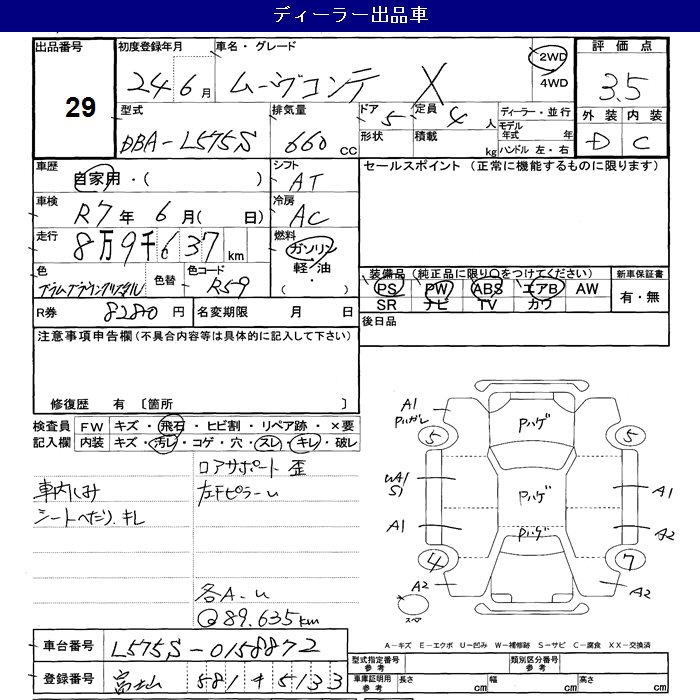 ディーラー出品車
出品番号 初度登録年月 車名・グレード 評価点
29 24 6月 ムーヴコンテ X 2WD 4WD 3.5
型式 排気量 ドア 5 定員 4人 ディーラー・並行 外装 内装
DBA-L575S 660 CC 形状 積載 kg モデル年式 年 D C
ハンドル 左・右
車歴 自家用・( ) シフト AT セールスポイント (正常に機能するものに限ります)
車検 R7年 6月( 日) 冷房 AC
走行 8万9千637km 燃料 ガソリン
軽/油
・
( )
色 プラムブラウンクリスタル 色替 色コード R59 装備品 (純正品に限り○をつけてください) 新車保証書
PS PW ABS エアB AW 有・無
SR ナビ TV カワ
R券 8280円 名変期限 月 日 後日品
注意事項申告欄(不具合内容等は具体的に記入して下さい)
修復歴 有 〔箇所 〕
検査員 FW キズ・飛石・ヒビ割・リペア跡・×要
記入欄 内装 キズ・汚レ・コゲ・穴・スレ・キレ・破レ
ロアサポート歪
車内しみ 左FピラーU
シートへたり、キレ
各A-U
@89.635km
A1 Pハガレ Pハゲ
5 5
WA1 S1 Pハゲ A1
A1 Pハゲ A2
4 7
A2 A2
スペア
A-キズ E-エクボ U-凹み W-補修跡 S-サビ C-腐食 XX-交換済
車台番号 L575S-0158872 型式指定番号 参考 類別区分番号 参考
登録番号 富士山 581 キ 5133 車庫証明用 参考 長さ cm 幅 cm 高さ cm